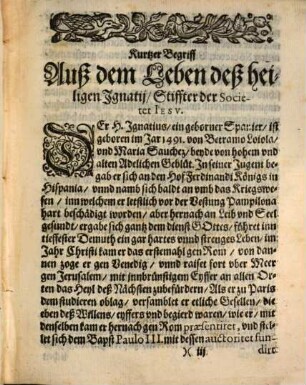 Kurtzer Begriff
Auß dem Leben deß hei-
ligen Ignatij/ Stiffter der Socie-
tet IESV.
DEr H. Ignatius/ ein geborner Spanier/ ist
geboren im Jar 1491. von Betramo Loiola/
vnnd Maria Sauchez/ beyde von hohem vnd
alten Adelichen Geblüt. In seiner Jugent be-
gab er sich an den Hof Ferdinandi Königs in
Hispania/ vnnd namb sich baldt an vmb das Kriegswe-
sen/ inn welchem er letstlich vor der Vestung Pampilona
hart beschädigt worden/ aber hernach an Leib vnd Seel
gesundt/ ergabe sich gantz dem dienst GOttes/ führet inn
tieffester Demuth ein gar hartes vnnd strenges Leben/ im
Jahr Christi kam er das erstemahl gen Rom/ von dan-
nen zoge er gen Venedig/ vnnd raiset fort vber Meer
gen Jerusalem/ mit innbrünstigem Eyffer an allen Or-
ten das Heyl deß Nächsten zubefürdern/ Als er zu Pariß
dem studieren oblag/ versamblet er etliche Gesellen/ die
eben deß Willens/ eyffers vnd begierd waren/ wie er/ mit
denselben kam er hernach gen Rom præsentitet, vnd stel-
let sich dem Bapst Paulo III. mit dessen auctoritet fun-
X iij. dirt